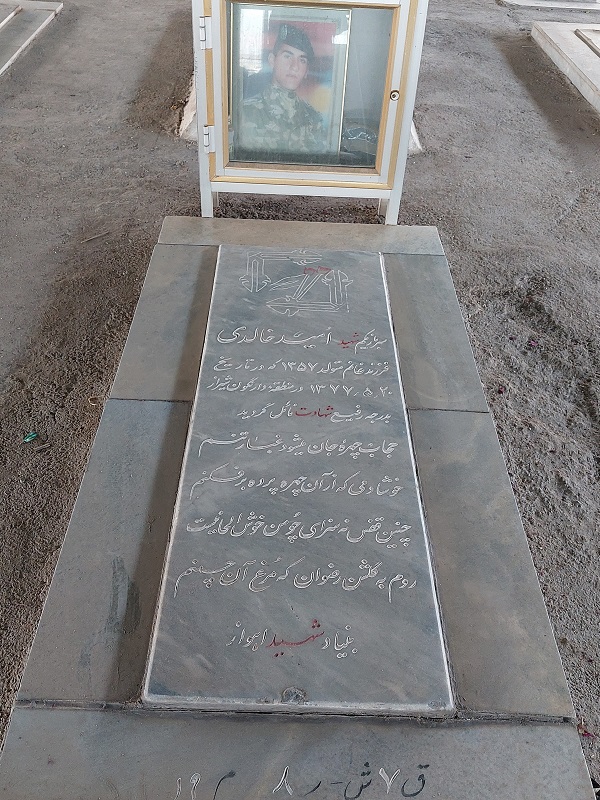 سرباز یکم شهید امید خالدی
فرزند غانم متولد ۱۳۵۷ که در تاریخ
۱۳۷۷٫۵٫۲۰ در منطقه دارنگون شیراز
بدرجه رفیع شهادت نائل گردید
حجاب چهرهٔ جان میشود غبار تنم
خوشا دمی که از آن چهره پرده برفکنم
چنین قفس نه سزای چو من خوش الحانیست
روم به گلشن رضوان که مرغ آن چمنم
بنیاد شهید اهواز
ق ۷ ش - ر ۸ م ۱۹